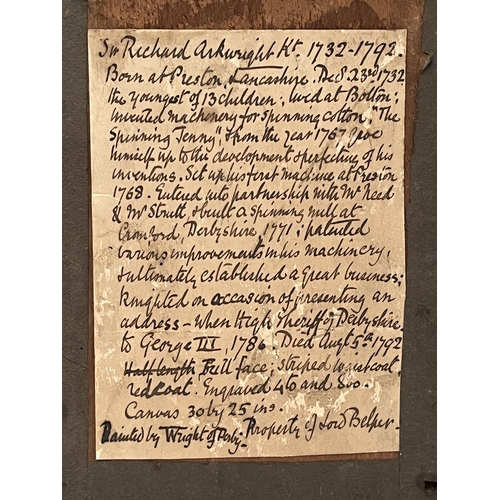 Sir Richard Arkwright Kt. 1732-1792.
Born at Preston, Lancashire. Dec 23rd 1732
the youngest of 13 children; lived at Bolton;
invented machinery for spinning cotton, "The
Spinning Jenny", from the year 1767 gave
himself up to the development & perfecting of his
inventions. Set up his first machine at Preston
1768. Entered into partnership with Mr Need
& Mr Strutt & built a spinning mill at
Cromford, Derbyshire, 1771; patented
various improvements in his machinery,
& ultimately established a great business;
knighted on occasion of presenting an
address - when High Sheriff of Derbyshire
to George III, 1786. Died Augt 5th 1792
Half length Full face; striped waistcoat
red coat. Engraved 4to and 8vo.
Canvas 30 by 25 ins.
Painted by Wright of Derby - Property of Lord Belper -